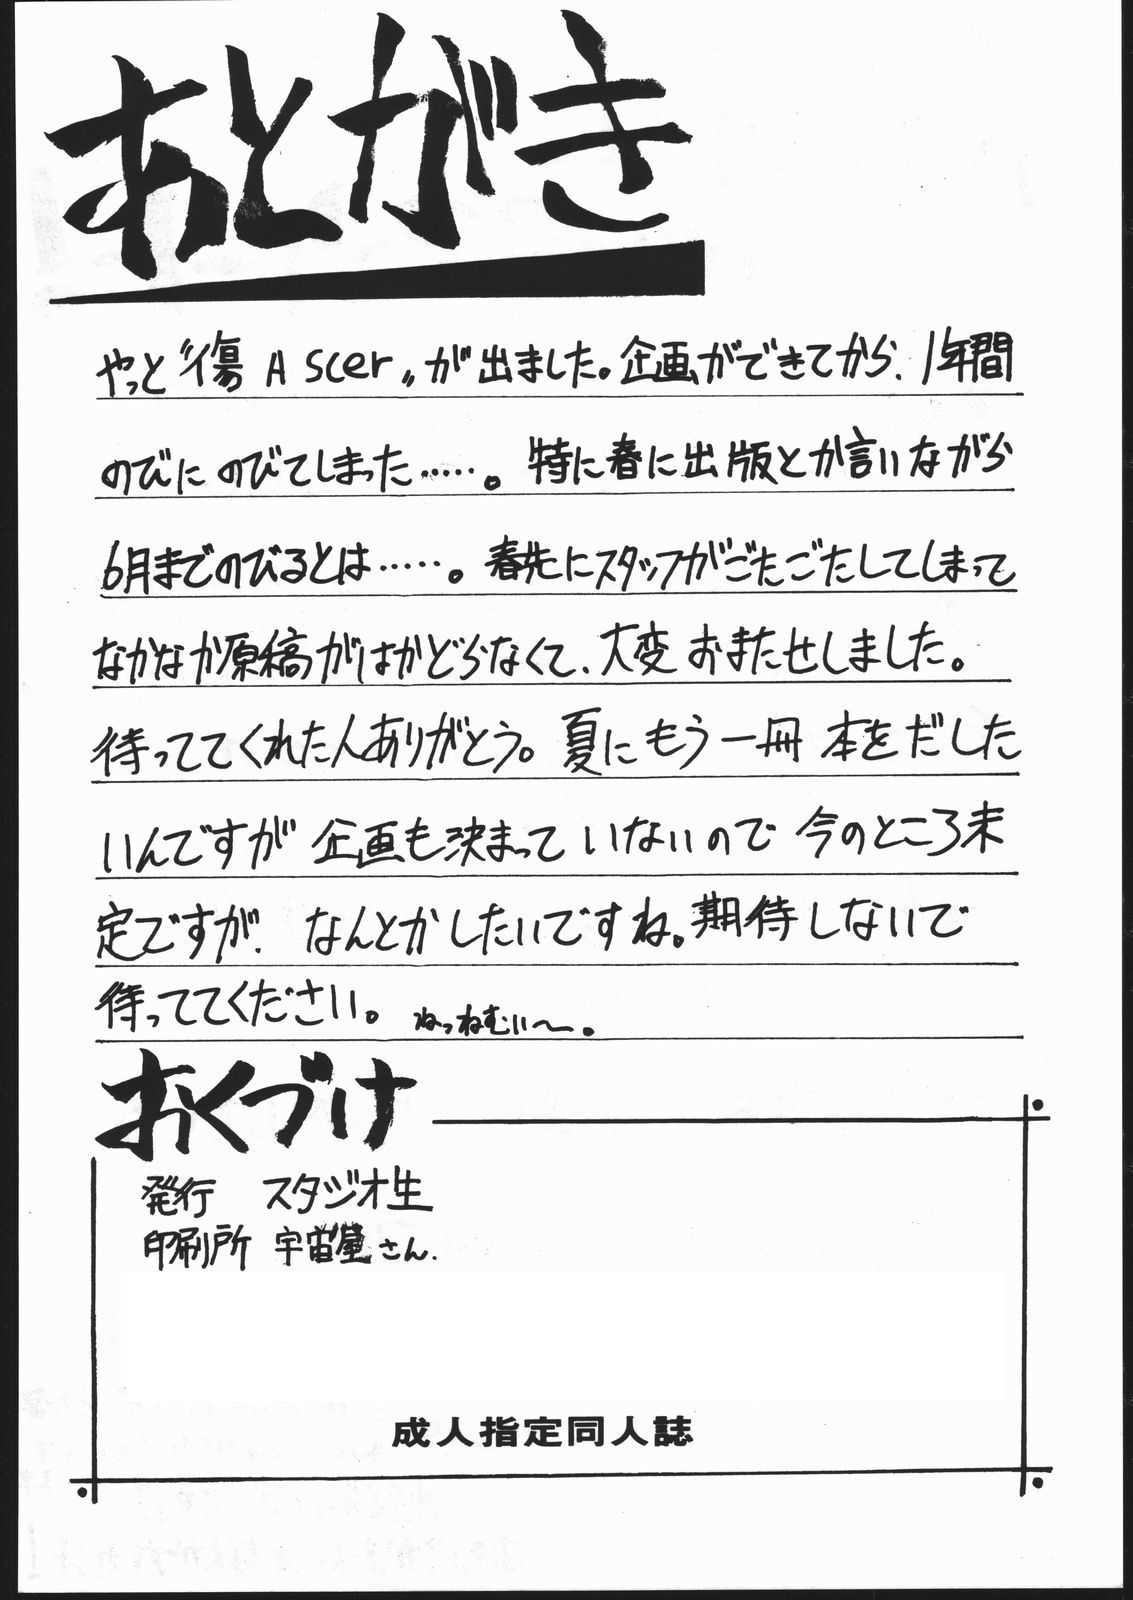 あとがき
やっと“傷 A scer〟が出ました。企画ができてから、1年間
のびにのびてしまった……。特に春に出版とか言いながら
6月までのびるとは……。春先にスタッフがごたごたしてしまって
なかなか原稿がはかどらなくて、大変おまたせしました。
待っててくれた人ありがとう。夏にもう一冊本をだした
いんですが企画も決まっていないので今のところ未
定ですが、なんとかしたいですね。期待しないで
待っててください。ねっねむい〜。
おくづけ
発行 スタジオ生
印刷所 宇宙屋さん.
成人指定同人誌